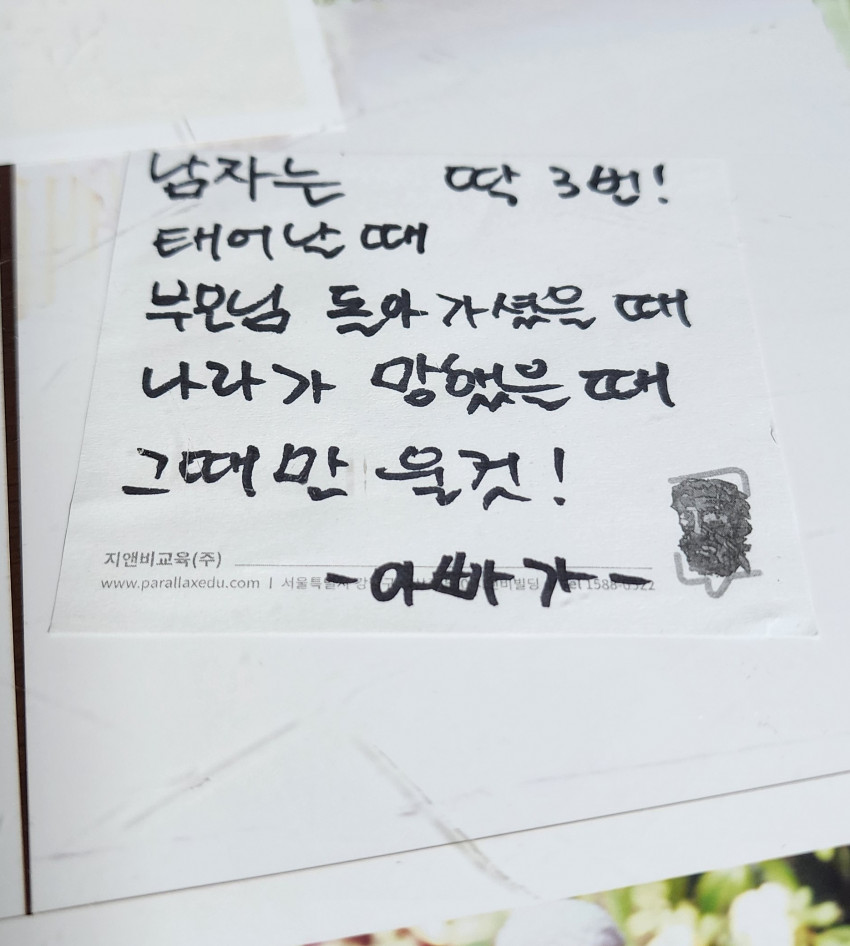 남자는 딱 3번!
태어난 때
부모님 돌아가셨을 때
나라가 망했을 때
그때만 울것!
지앤비교육(주)
-아빠가-
www.parallaxedu.com | 서울특별시